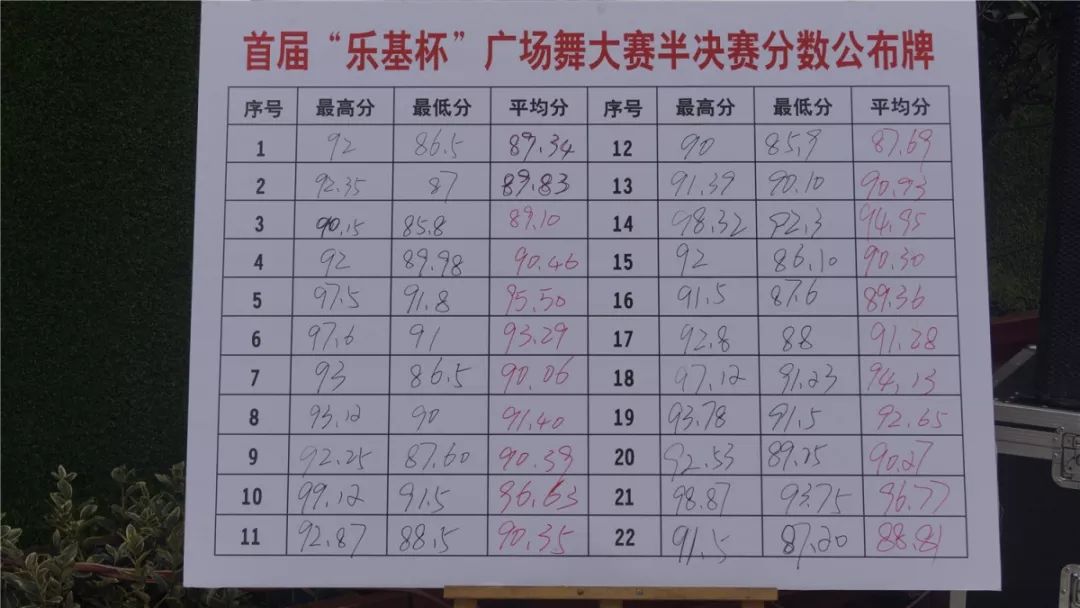 首届“乐基杯”广场舞大赛半决赛分数公布牌
序号 最高分 最低分 平均分 序号 最高分 最低分 平均分
1 92 86.5 89.34 12 90 85.9 87.69
2 92.35 87 89.83 13 91.39 90.10 90.93
3 90.15 85.8 89.10 14 98.32 92.3 94.95
4 92 89.98 90.46 15 92 86.10 90.30
5 97.5 91.8 95.50 16 91.5 87.6 89.36
6 97.6 91 93.29 17 92.8 88 91.28
7 93 86.5 90.06 18 97.12 91.23 94.13
8 93.12 90 91.40 19 93.78 91.5 92.65
9 92.25 87.60 90.39 20 92.53 89.25 90.27
10 99.12 91.5 96.63 21 98.87 93.75 96.77
11 92.87 88.5 90.35 22 91.5 87.20 88.81